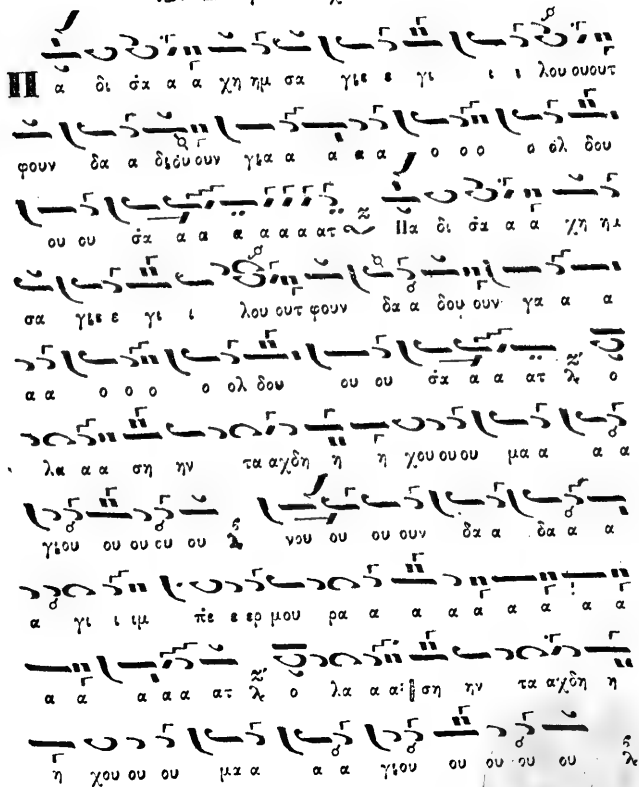 Πα δι σ̇α α α χη ημ σα γιε ε γι ι ι λου ουουτ
φουν δα α διου ουν για α α α α ο ο ο ο ολ δου
ου ου σ̇α α α α α α α ατ Πα δι σ̇α α α χη ημ
σα γιε ε γι ι λου ουτ φουν δα α δου ουν γα α α
α α ο ο ο ο ολ δου ου ου σ̇α α α ατ ο
λα α α ση ην τα αχδη η η χου ου ου μα α α α
γιου ου ου ου ου νου ου ου ουν δα α δα α α
α γι ι ιμ π̇ε ε ερ μου ρα α α α α α α α
α α α α α ατ ο λα α α ση ην τα αχδη η
η χου ου ου μα α α α γιου ου ου ου ου